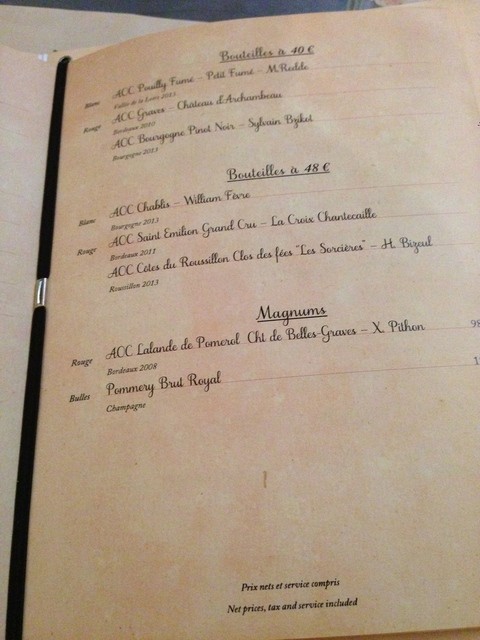 Bouteilles à 40 €
Blanc AOC Pouilly Fumé – Petit Fumé – M.Redde
Vallée de la Loire 2013
Rouge AOC Graves – Château d'Archambeau
Bordeaux 2010
AOC Bourgogne Pinot Noir – Sylvain Bzikot
Bourgogne 2013
Bouteilles à 48 €
Blanc AOC Chablis – William Fèvre
Bourgogne 2013
Rouge AOC Saint Emilion Grand Cru – La Croix Chantecaille
Bordeaux 2011
AOC Côtes du Roussillon Clos des fées "Les Sorcières" – H. Bizeul
Roussillon 2013
Magnums
Rouge AOC Lalande de Pomerol Cht de Belles-Graves – X. Pithon 98
Bordeaux 2008
Bulles Pommery Brut Royal
Champagne
Prix nets et service compris
Net prices, tax and service included